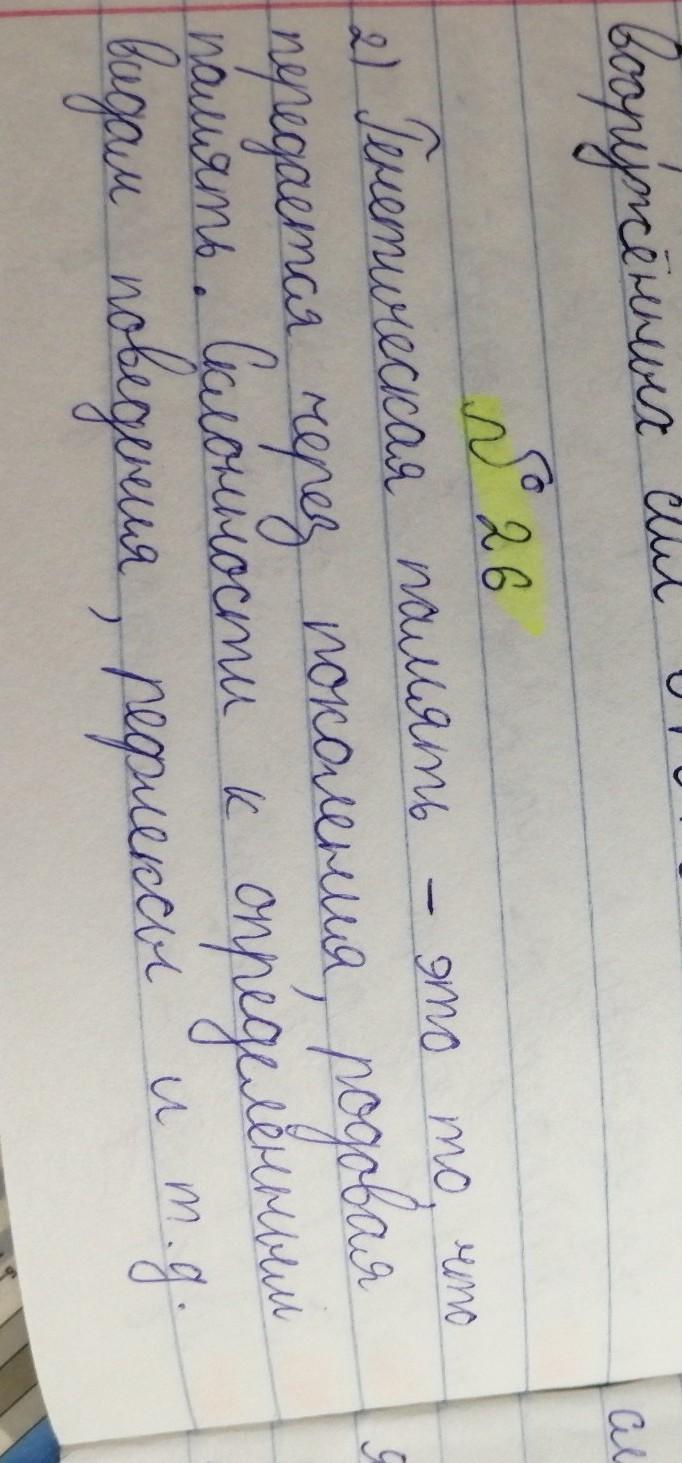 вооружённых сил
№ 26
2) Генетическая память – это то, что
передается через поколения, родовая
память. Склонности к определенным
видам поведения, рефлексы и т.д.